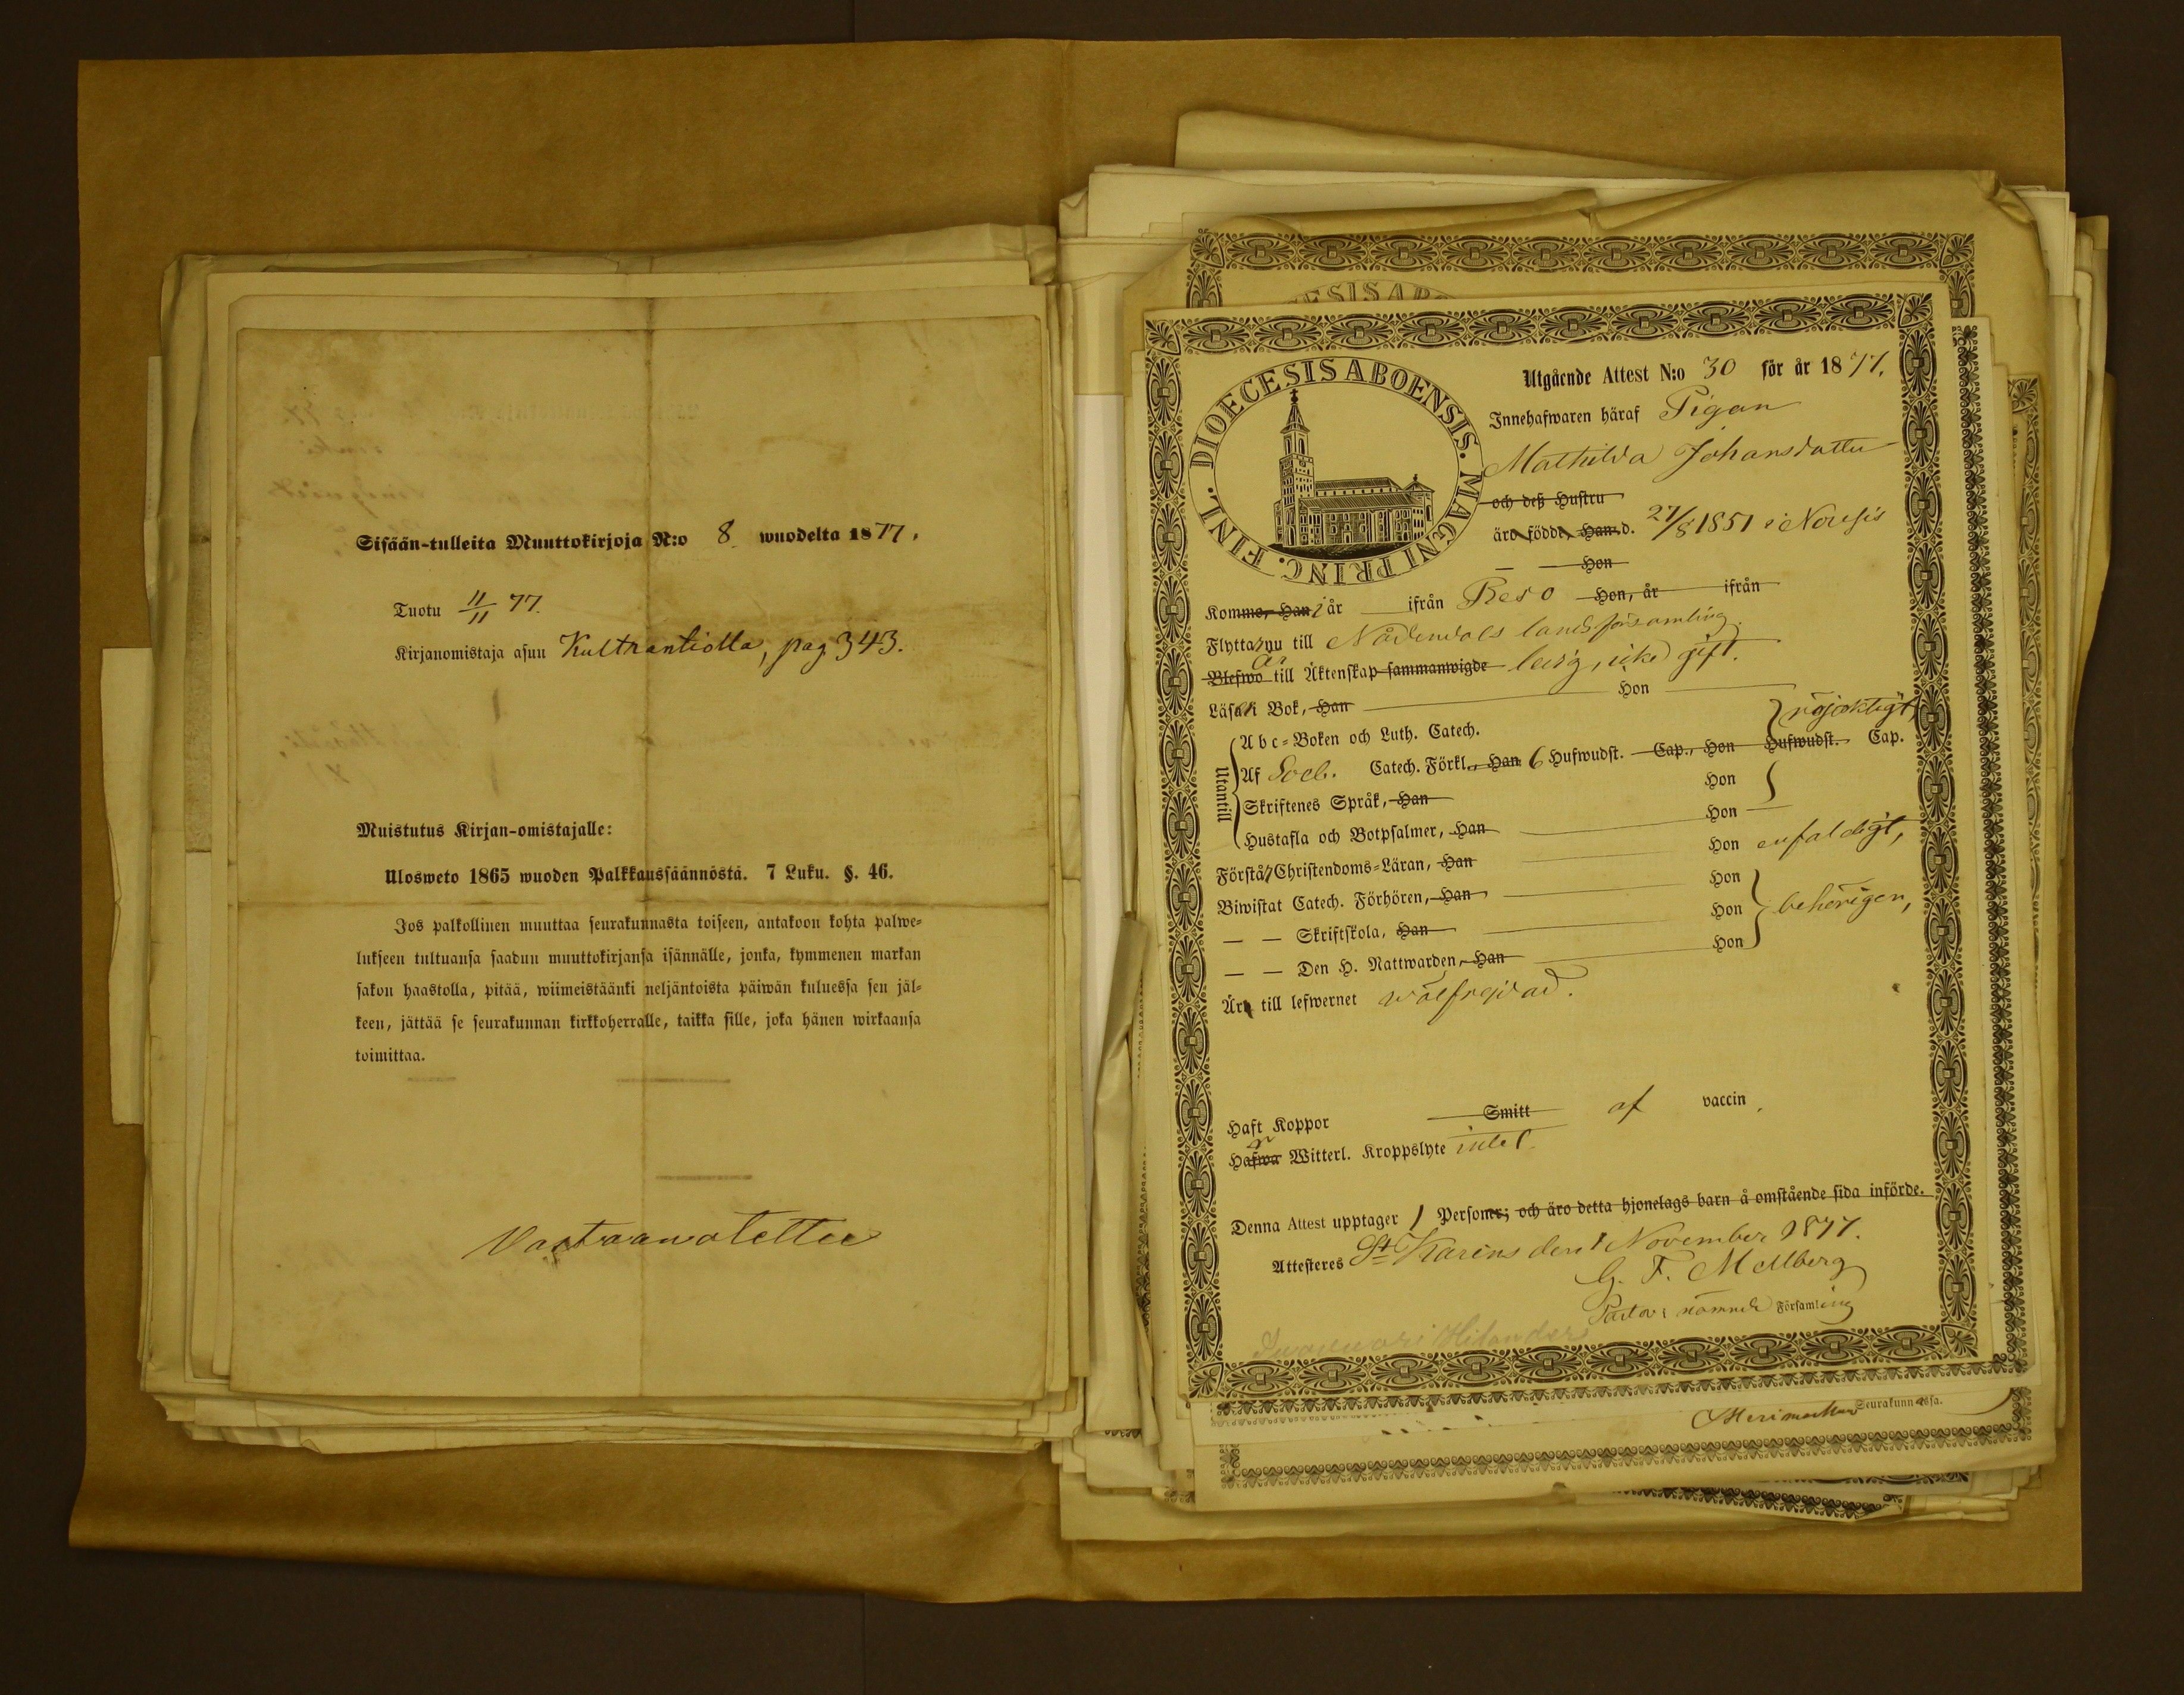 Sisään-tulleita Muuttokirjoja N:o 8 wuodelta 1877.
Tuotu 11/11 77.
Kirjanomistaja asuu Kultrantiolla, pag 343.
Muistutus Kirjan-omistajalle:
Ulosweto 1865 wuoden Palkkaussäännöstä. 7 Luku. §. 46.
Jos palkollinen muuttaa seurakunnasta toiseen, antakoon kohta palwe-
lukseen tultuansa saadun muuttokirjansa isännälle, jonka, kymmenen markan
sakon haastolla, pitää, wiimeistäänki neljäntoista päiwän kuluessa sen jäl-
keen, jättää se seurakunnan kirkkoherralle, taikka sille, joka hänen wirkaansa
toimittaa.
Vastaanotettu
DIOECESIS ABOENSIS. MAGNI PRINC. FINL.
Utgående Attest N:o 30 för år 1877.
Innehafwaren häraf Pigan
Mathilda Johansdotter
och deß Hustru
äro födde, Han d. 27/8 1851 i Nousis
— — Hon
Komme, Han i år ifrån Reso Hon, år ifrån
Flytta nu till Nådendals landsförsamling.
Blefwo till Äktenskap sammanwigde ledig, icke gift.
Läsa i Bok, Han Hon
Utantill
Abc-Boken och Luth. Catech. nöjaktigt,
Af Soeb. Catech. Förkl., Han 6 Hufwudst. Cap., Hon Hufwudst. Cap.
Skriftenes Språk, Han Hon
Hustafla och Botpsalmer, Han Hon
Förstå Christendoms-Läran, Han Hon enfaldigt,
Biwistat Catech. Förhören, Han Hon
— — Skriftskola, Han Hon behörigen,
— — Den H. Nattwarden, Han Hon
Äro till lefwernet wälfrejdad.
Haft Koppor Smitt af vaccin
Hafwa Witterl. Kroppslyte intet.
Denna Attest upptager 1 Personer; och äro detta hjonelags barn å omstående sida införde.
Attesteres St Karins den 1 November 1877.
G. F. Mellberg
Pastor i nämnde Församling
Seurakunnassa.